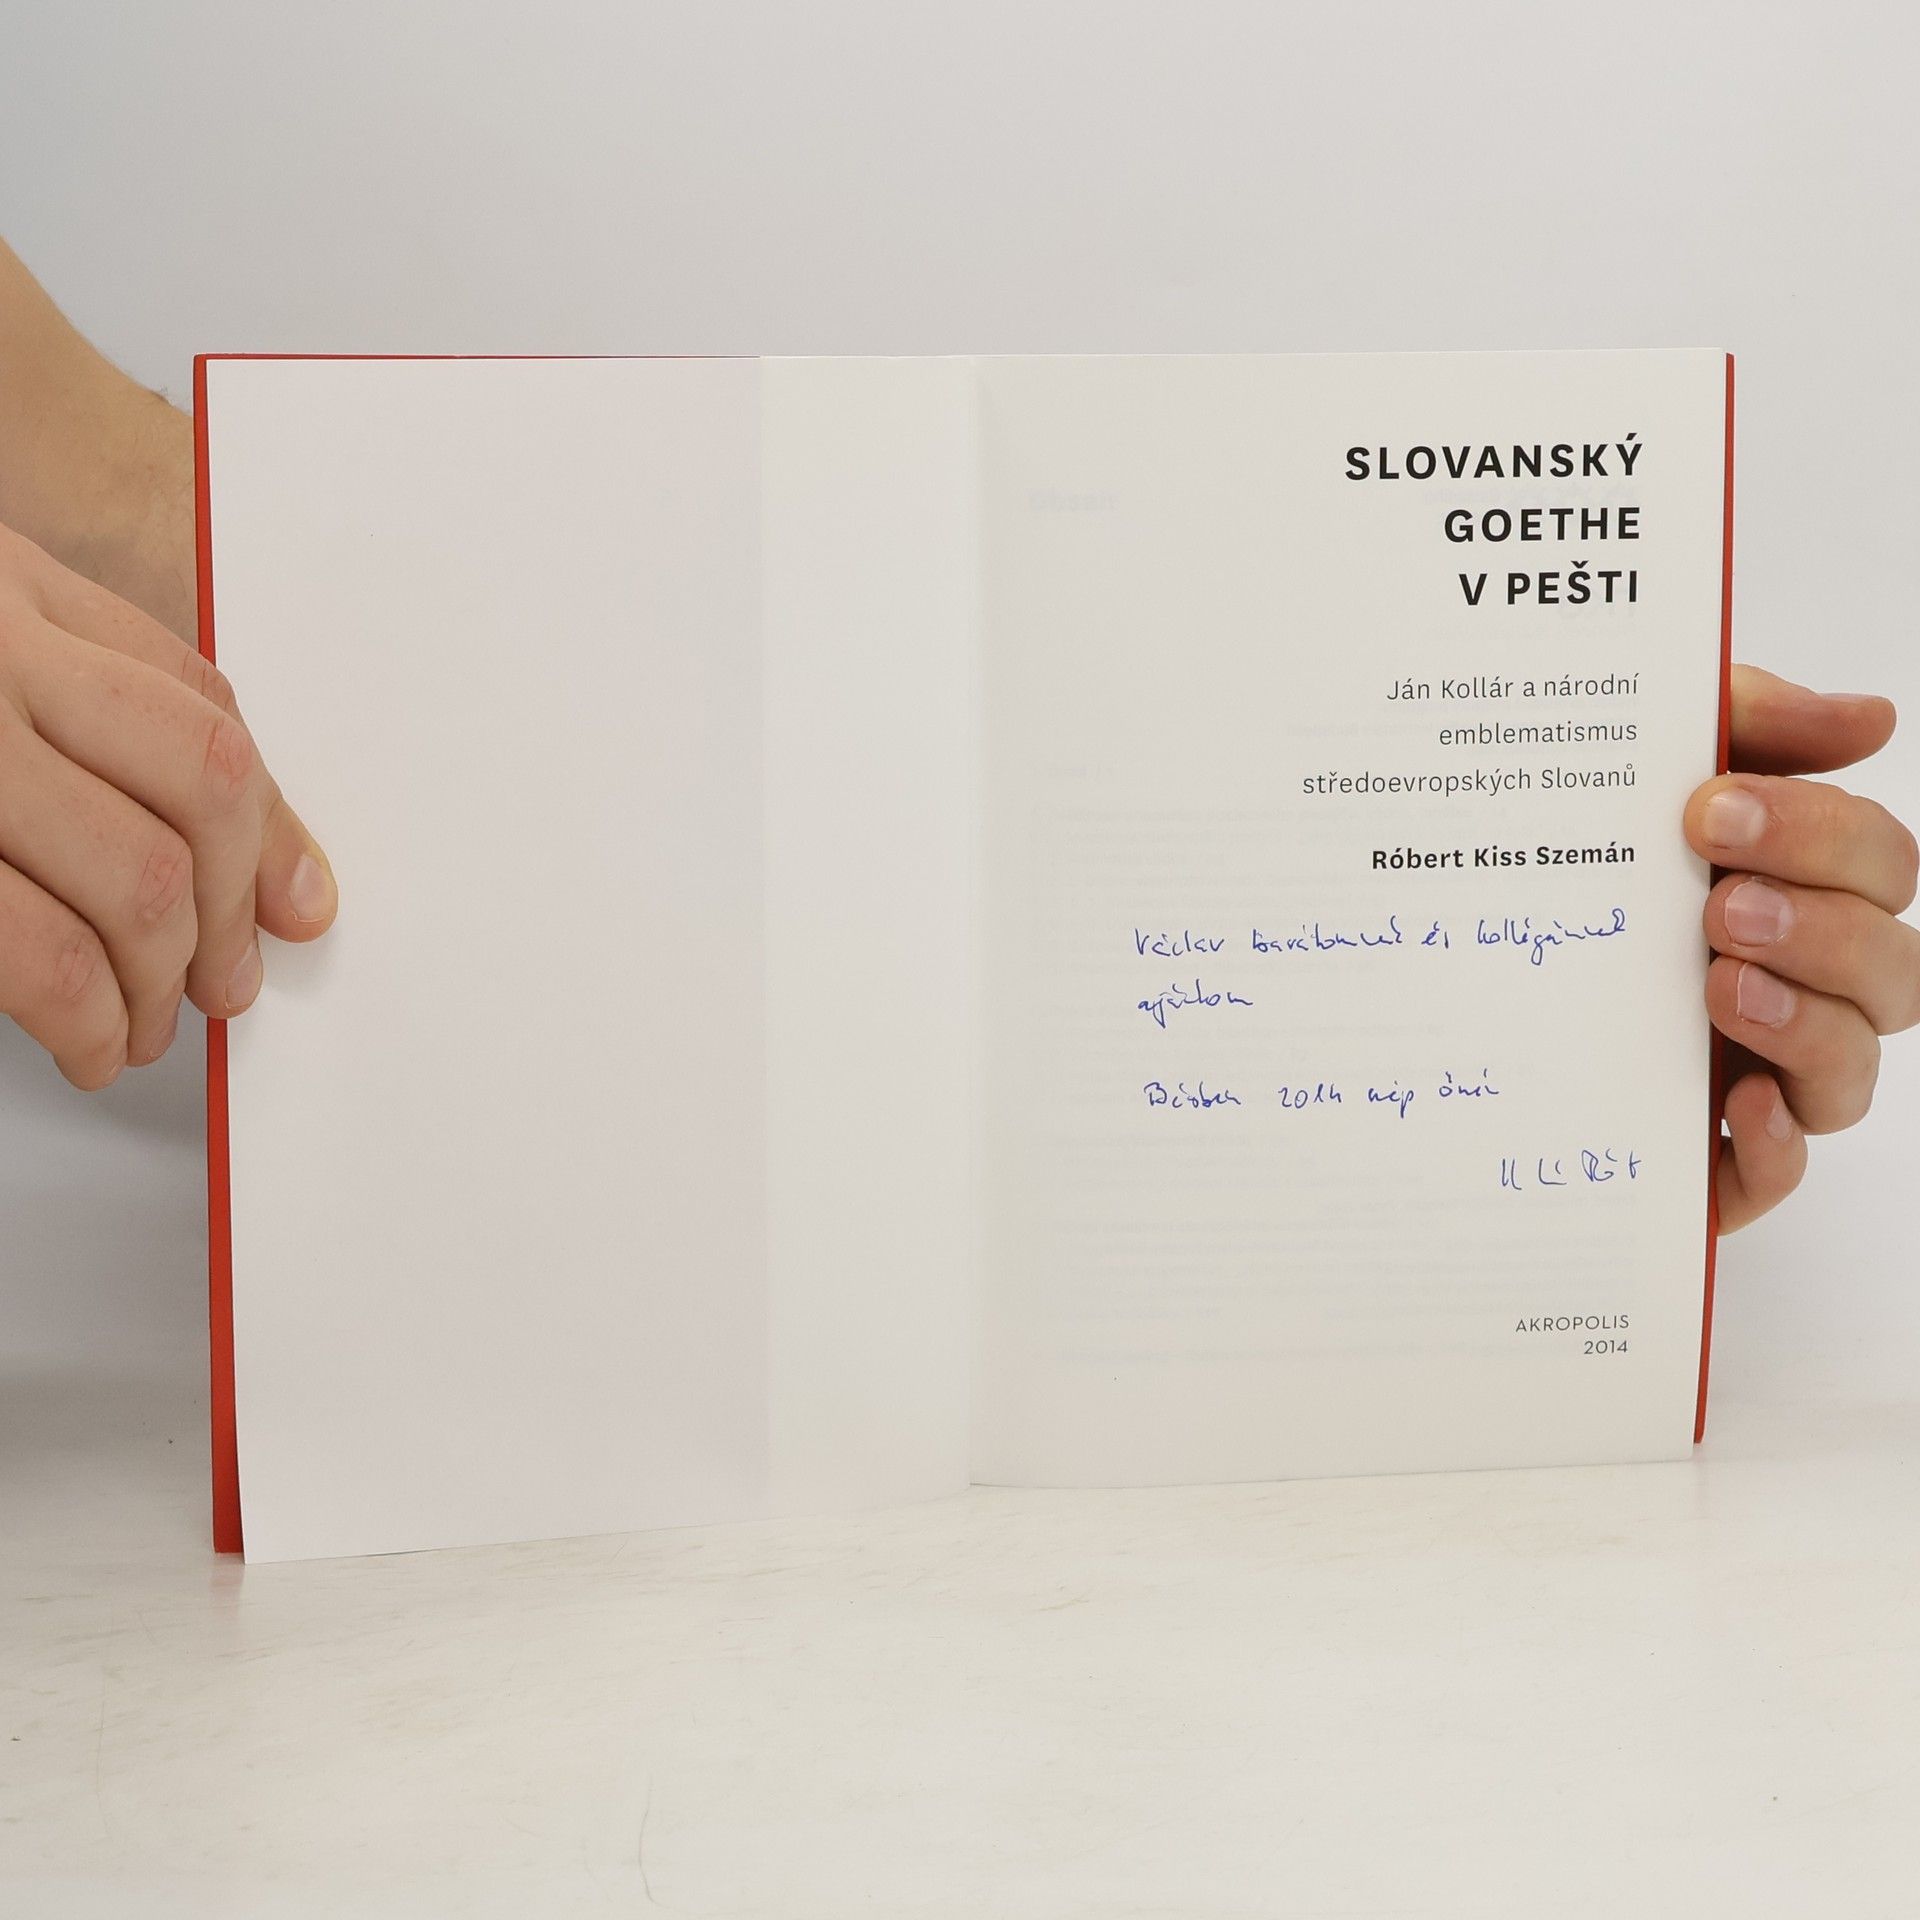 SLOVANSKÝ
GOETHE
V PEŠTI
Ján Kollár a národní
emblematismus
středoevropských Slovanů
Róbert Kiss Szemán
Václav barátomnak és kollégámnak
ajánlom
2014
AKROPOLIS
2014